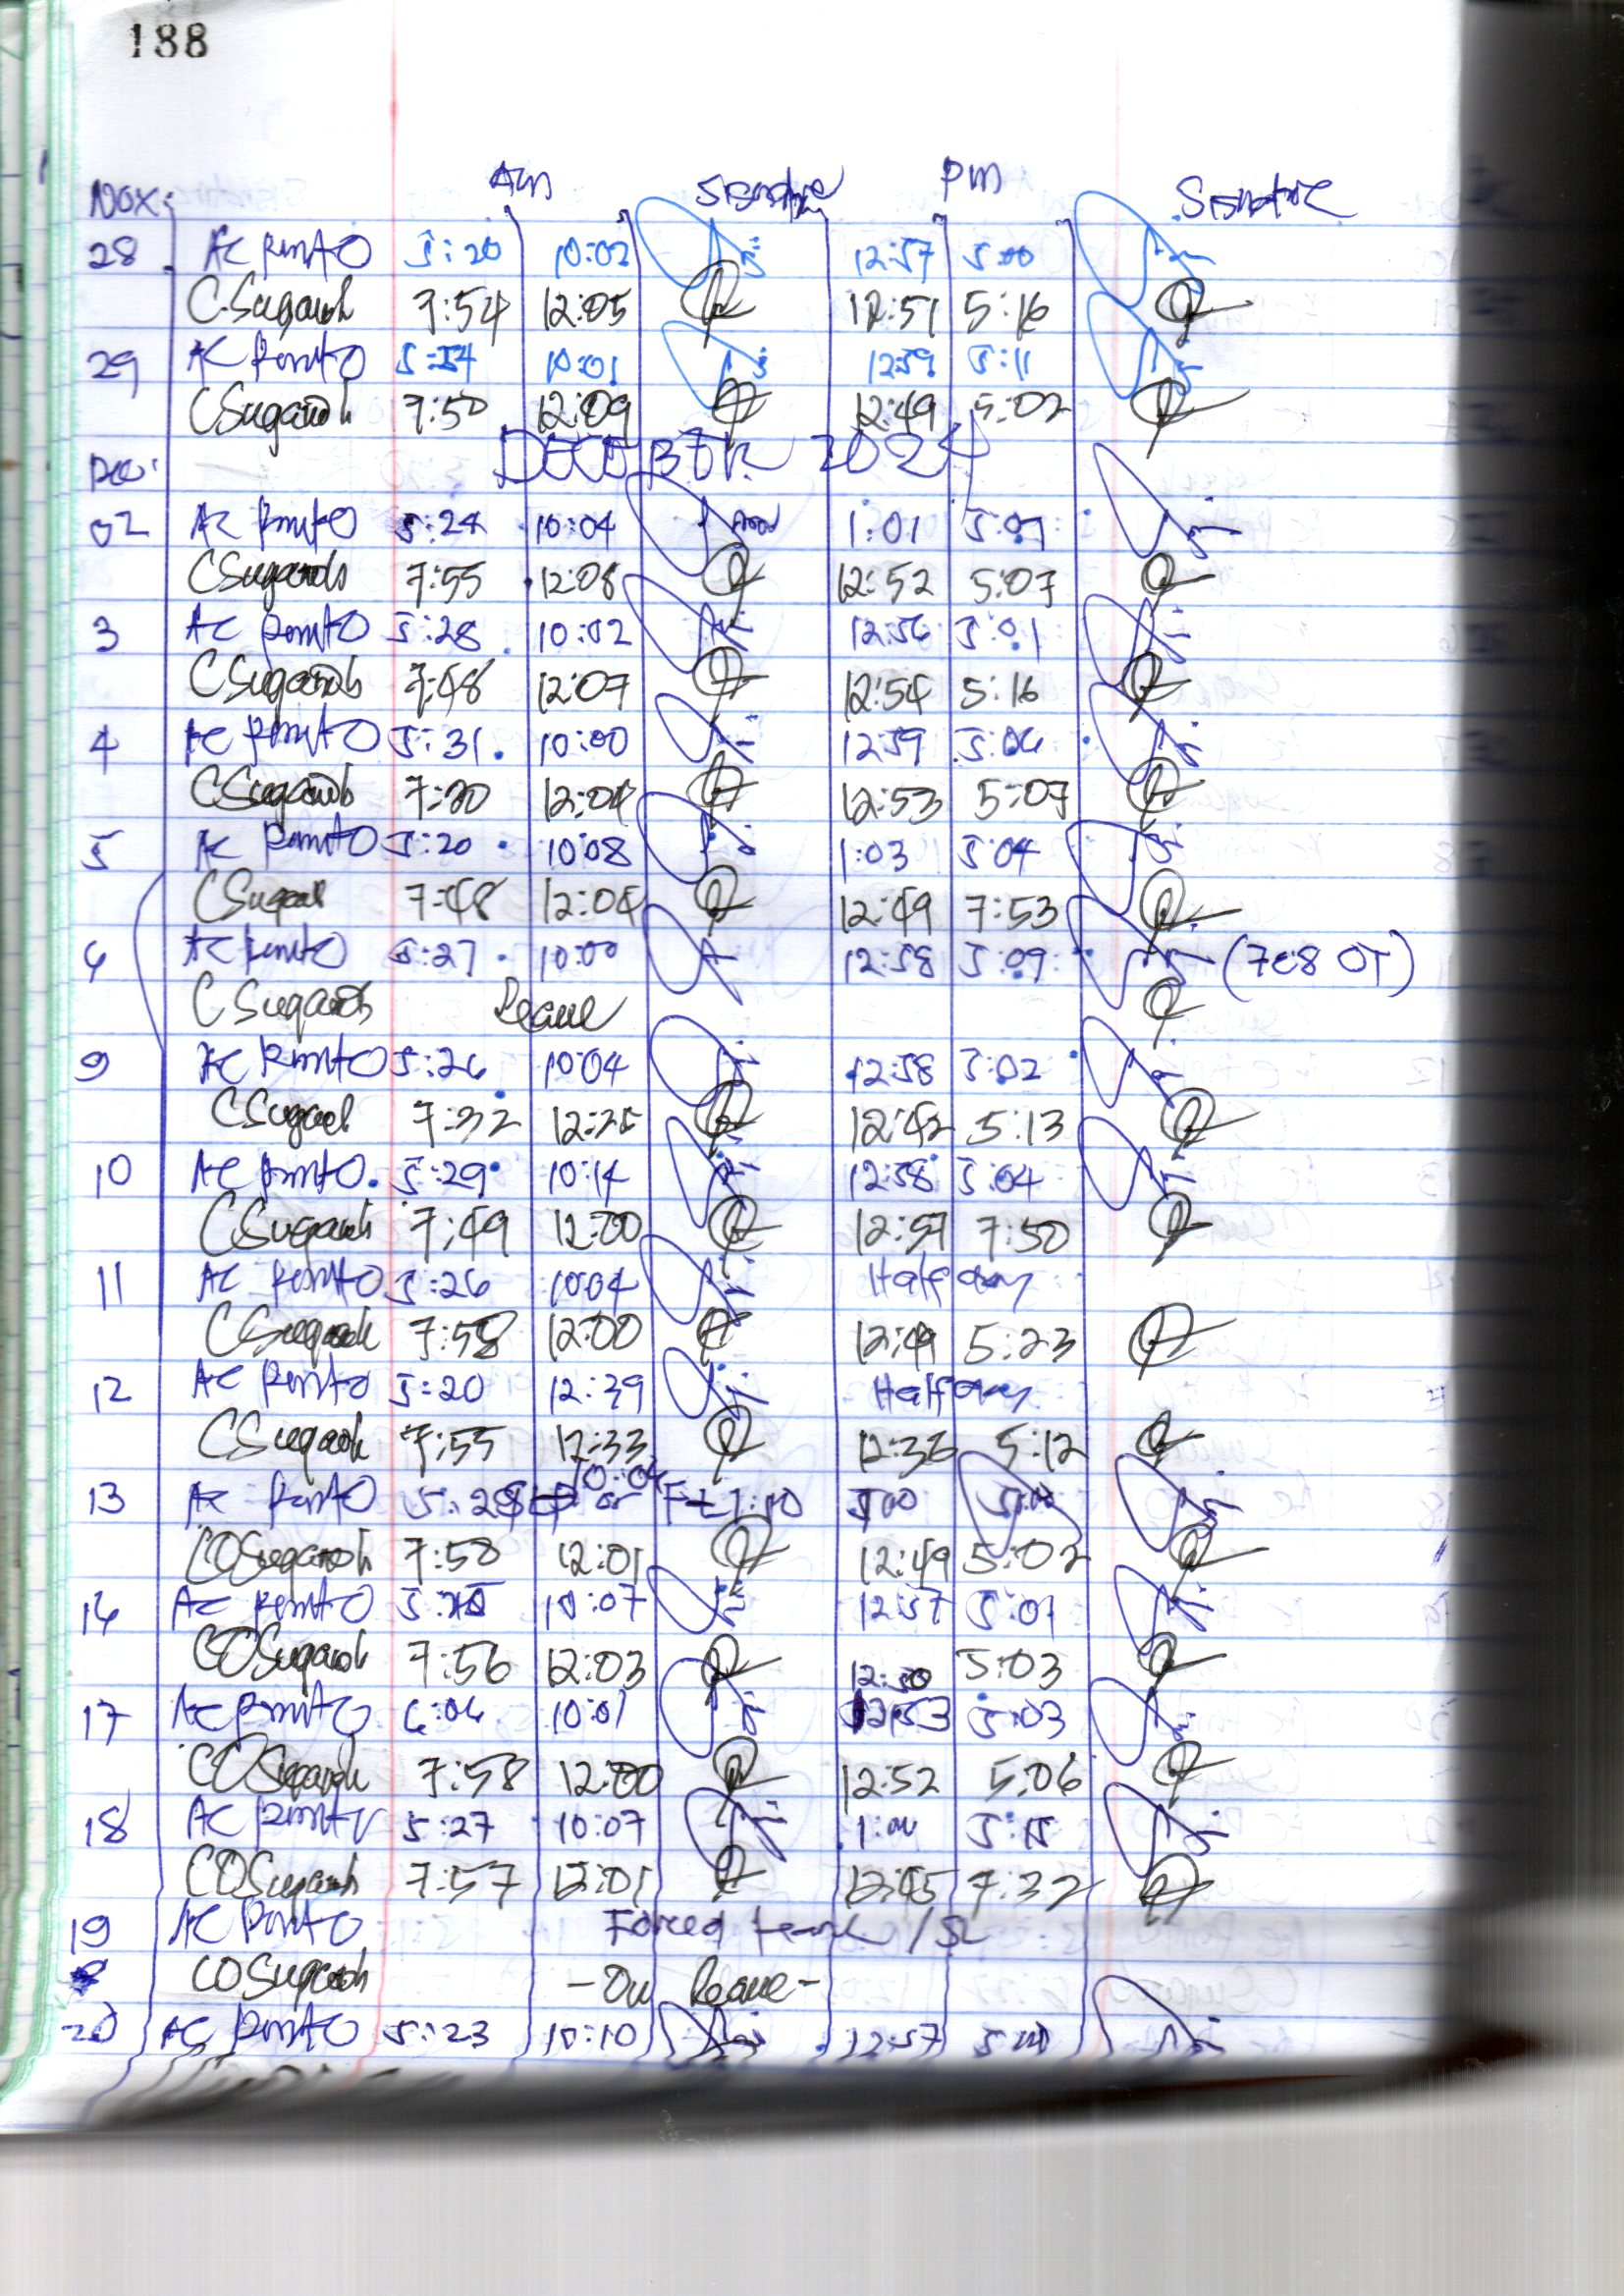 188
Nov: Am Signature Pm Signature
28 AC Pinto 5:20 10:02 12:57 5:00
C. Suganob 7:54 12:05 12:51 5:16
29 AC Pinto 10:01 12:59 5:11
C Suganob 7:50 12:09 12:49 5:02
Dec: DECEBER 2024
02 AC Pinto 5:24 10:04 1:01 5:09
C Suganob 7:55 12:08 12:52 5:07
3 AC Pinto 5:28 10:02 12:56 5:01
C Suganob 7:48 12:07 12:54 5:16
4 AC Pinto 5:31 10:00 12:59 5:06
C Suganob 12:04 12:53 5:07
5 AC Pinto 5:20 10:08 1:03 5:04
C Suganob 7:48 12:04 12:49 7:53
6 AC Pinto 5:27 10:00 12:58 5:09 (7&8 OT)
C Suganob Leave
9 AC Pinto 5:26 10:04 12:58 5:02
C Suganob 7:32 12:42 5:13
10 AC Pinto 5:29 10:14 12:58 5:04
C Suganob 7:49 12:00 12:57 7:50
11 AC Pinto 5:26 10:04 Halfday
C Suganob 7:58 12:00 12:49 5:23
12 AC Pinto 5:20 12:39 Halfday
C Suganob 7:55 12:33 12:36 5:12
13 AC Pinto 5:28 10:04 5:00
CO Suganob 7:58 12:01 12:49 5:02
16 AC Pinto 10:07 12:57 5:01
CO Suganob 7:56 12:03 12:30 5:03
17 AC Pinto 6:06 10:01 12:53 5:03
CO Suganob 7:58 12:00 12:52 5:06
18 AC Pinto 5:27 10:07 1:00 5:15
CO Suganob 7:57 12:01 12:45 7:32
19 AC Pinto Forced leave / SL
CO Suganob - On leave -
20 AC Pinto 5:23 10:10 12:57